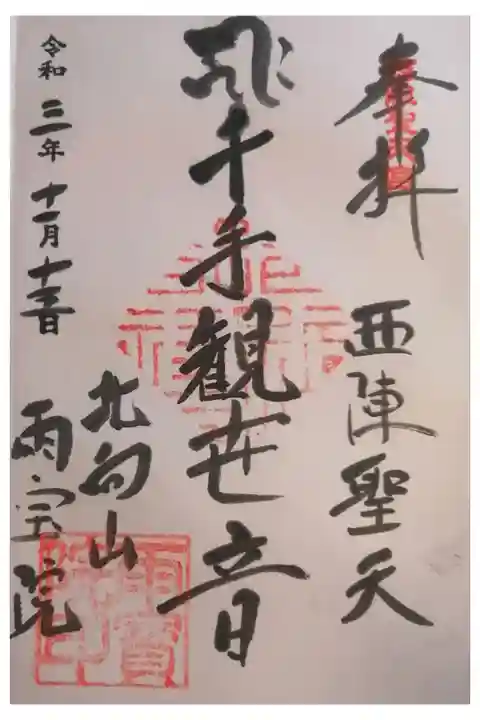 奉拝
西陣聖天
千手観世音
北向山
雨宝院
令和三年十一月十三日